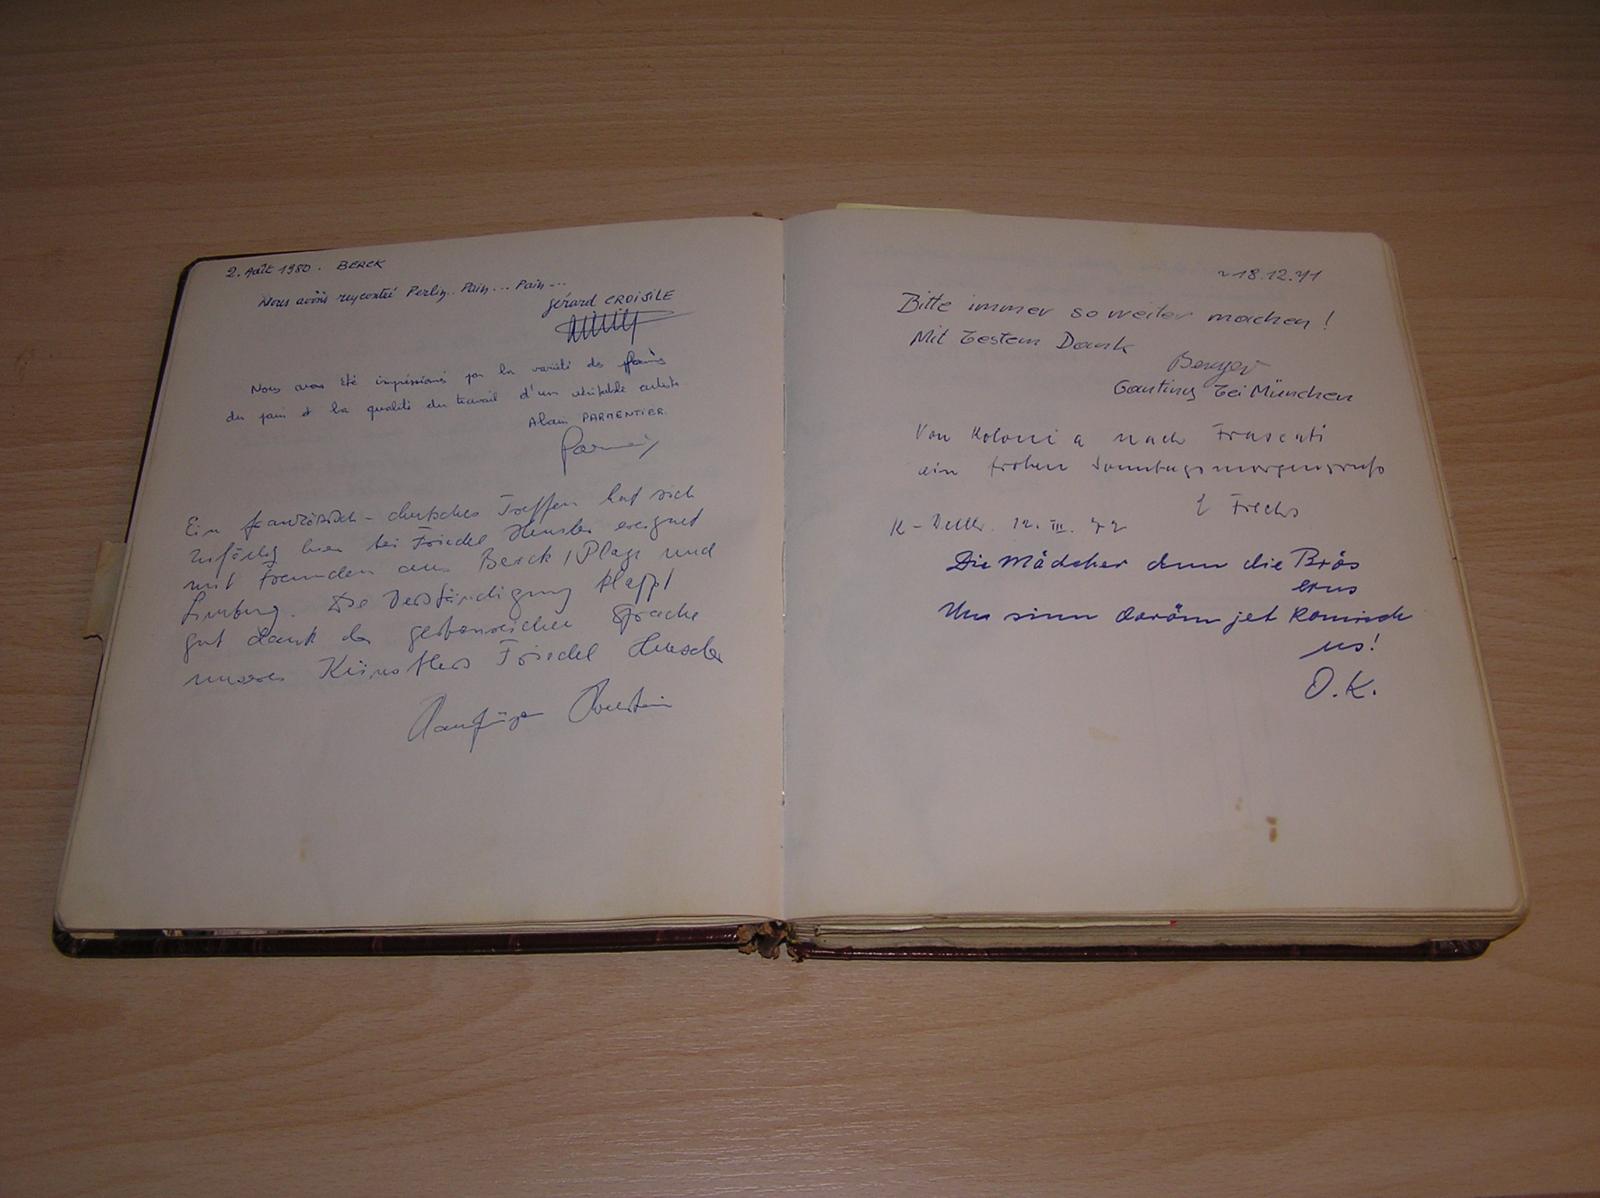 2. Août 1980. BERCK
Nous avons rencontré Perlin.. Pain... Pain...
Gérard CROISILE
Nous avons été impressionnés par la variété des
du pain et la qualité du travail d'un véritable artiste
Alain PARMENTIER.
Ein französisch-deutsches Treffen hat sich
zufällig hier bei Friedel Hensler ereignet
mit Freunden aus Berck/Plage und
Limburg. Die Verständigung klappt
gut dank der gestenreichen Sprache
unseres Künstlers Friedel Hensler
18.12.71
Bitte immer so weiter machen!
Mit bestem Dank
Berger
Gauting bei München
Von Kolonia nach Frascati
ein frohen Sonntagsmorgengruß
12. III. 72
Die Mädcher dunn die Brös
erus
Un sinn doröm jet komisch
us!
O.K.